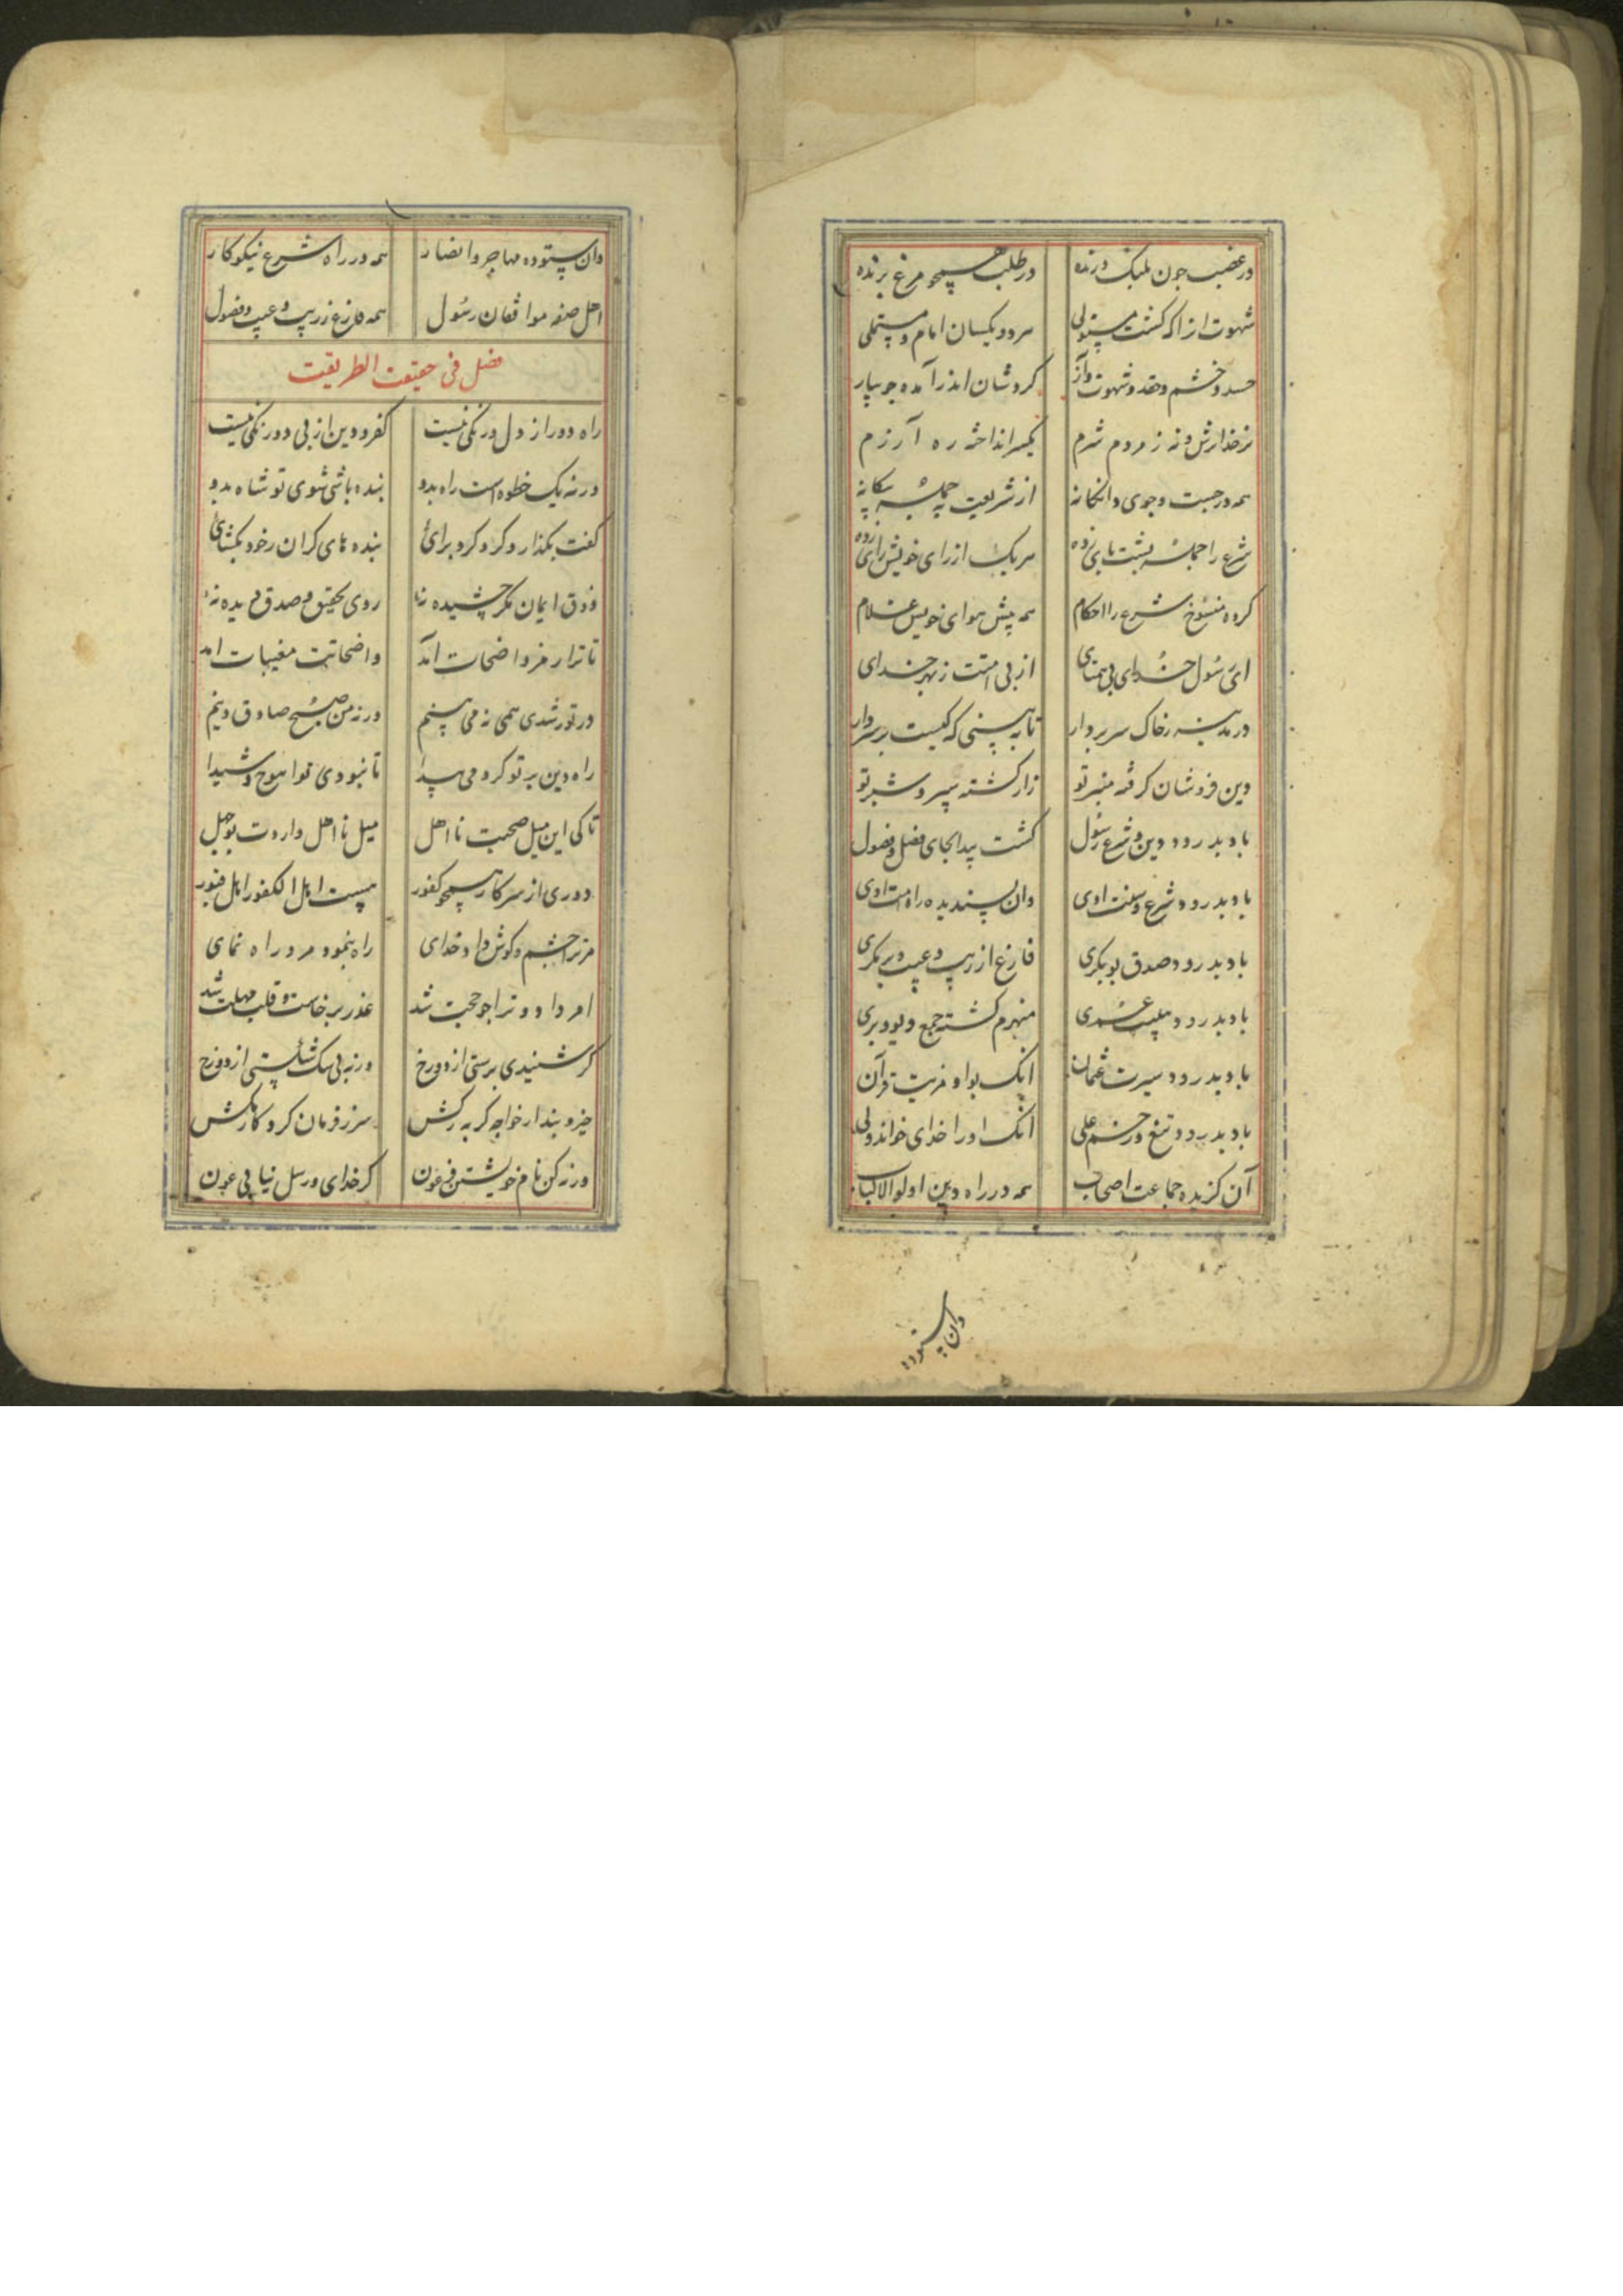 در غضب چون پلنک درنده در طلب همچو مرغ پرنده
شهوت از اکه کشت مستولی هر دو یکسان امام و مستملی
حسد و خشم و حقد و شهوت و آز کردشان اندر آمده جو
نز خدا ترس و نه ز مردم شرم یکسر انداخته ره آزرم
همه در جست و جوی دانکانه از شریعت جمله بیکانه
شرع را جمله پشت پای زده هر یک از رای خویش رای زده
کرده منسوخ شرع را احکام همه پیش هوای خویش غلام
ای رسول خدای بی همتای از پی امتت ز بهر خدای
در مدینه ز خاک سر بردار تا ببینی که کیست بر سر دار
دین فروشان کرفته منبر تو زار کشته شبیر و شبر تو
باد بدرود دین و شرع رسول کشت پیدا بجای فضل فضول
باد بدرود شرع و سنت اوی وان پسندیده راه امت اوی
باد بدرود صدق بوبکری فارغ از ریب و عیب و پر مکری
باد بدرود هیبت عمری منهزم کشته جمع دیو و پری
باد بدرود سیرت عثمان انک بد او مرتب قرآن
باد بدرود تیغ و زخم علی انک او را خدای خواند ولی
آن کزیده جماعت اصحاب همه در راه دین اولو الالباب
وان ستوده
وان ستوده مهاجر و انصار همه در راه شرع نیکو کار
اهل صفه موافقان رسول همه فارغ ز ریب و عیب و فضول
فصل فی حقیقت الطریقت
راه دور از دل درنکی تست کفر و دین از پی دو رنکی تست
ورنه یک خطوه است راه بدو بنده باشی شوی تو شاه بدو
کفت بکذار و کرد کرد برای بندهای کران ز خود بکشای
ذوق ایمان مکر چشیده نه‌ٔ روی تحقیق و صدق دیده نه‌ٔ
تا ترا رمز واضحات آمد واضحاتت مغیبات امد
در تو رشدی همی نه می بینم ورنه من صبح صادق دینم
راه دین بر تو کردمی پیدا تا نبودی تو اهوج و شیدا
تا کی این میل صحبت نا اهل میل نا اهل داردت بوجهل
دوری از سر کار همچو کفور هست اهل الکفور اهل قبور
مر ترا چشم و کوش داد خدای راه بنمود مرد راه نمای
امر داد و ترا چو حجت شد عذر برخاست وقت مهلت شد
کر شنیدی برستی از دوزخ ورنه بی شک نشستی از دوزخ
خیز و پندار خواجه کر به رکش سر ز فرمان کردکار مکش
ورنه کن نام خویشتن فرعون کز خدای و رسل نیابی عون